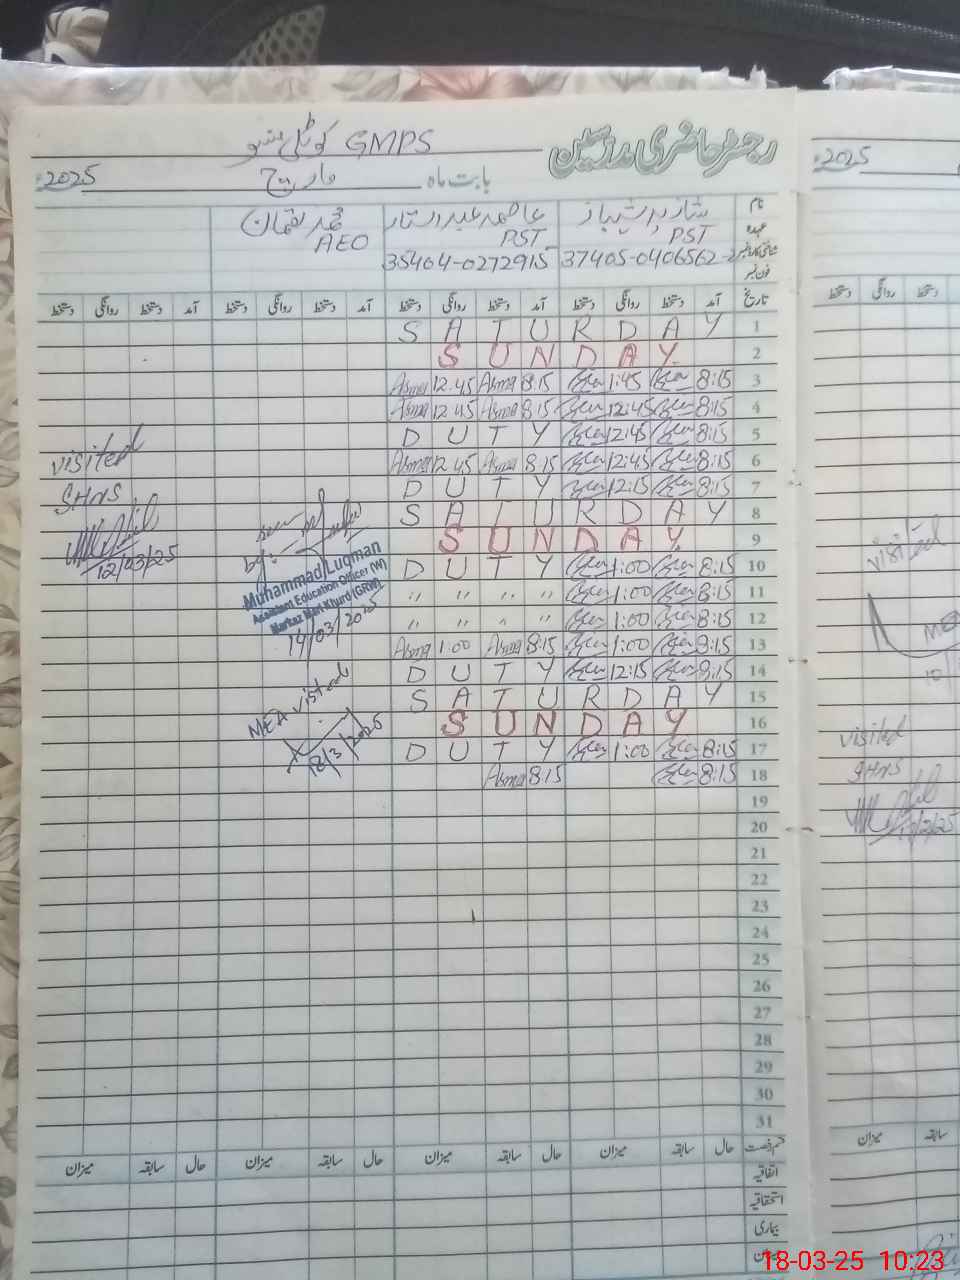 رجسٹر حاضری مدرسین
GMPS کوٹلی
بابت ماہ مارچ 2025ء
نام شازیہ شہباز عاصمہ عبدالستار محمد لقمان
عہدہ PST PST AEO
شناختی کارڈ نمبر 37405-0406562-2 35404-0272915
فون نمبر
تاریخ آمد دستخط روانگی دستخط آمد دستخط روانگی دستخط آمد دستخط روانگی دستخط آمد دستخط روانگی دستخط
1 SATURDAY
2 SUNDAY
3 8:15 1:45 8:15 Asma 12.45 Asma
4 8:15 12:45 8:15 Asma 12.45 Asma
5 8:15 12:45 DUTY
6 8:15 12:45 8:15 Asma 12.45 Asma
7 8:15 12:15 DUTY
8 SATURDAY
9 SUNDAY
10 8:15 1:00 DUTY
11 8:15 1:00 " " " "
12 8:15 1:00 " " " "
13 8:15 1:00 8:15 Asma 1:00 Asma
14 8:15 12:15 DUTY
15 SATURDAY
16 SUNDAY
17 8:15 1:00 DUTY
18 8:15 8:15 Asma
19
20
21
22
23
24
25
26
27
28
29
30
31
visited
SHNS
12/03/25
seen
by:-
Muhammad Luqman
Assistant Education Officer (W)
Markaz Mari Khurd (GRW)
14/03/2025
MEA visited
18/3/2025
قسم رخصت حال سابقہ میزان حال سابقہ میزان حال سابقہ میزان حال سابقہ میزان
اتفاقیہ
استحقاقیہ
بیماری
میزان
2025ء
دستخط روانگی دستخط
visited
MEA
visited
SHNS
سابقہ میزان
18-03-25 10:23